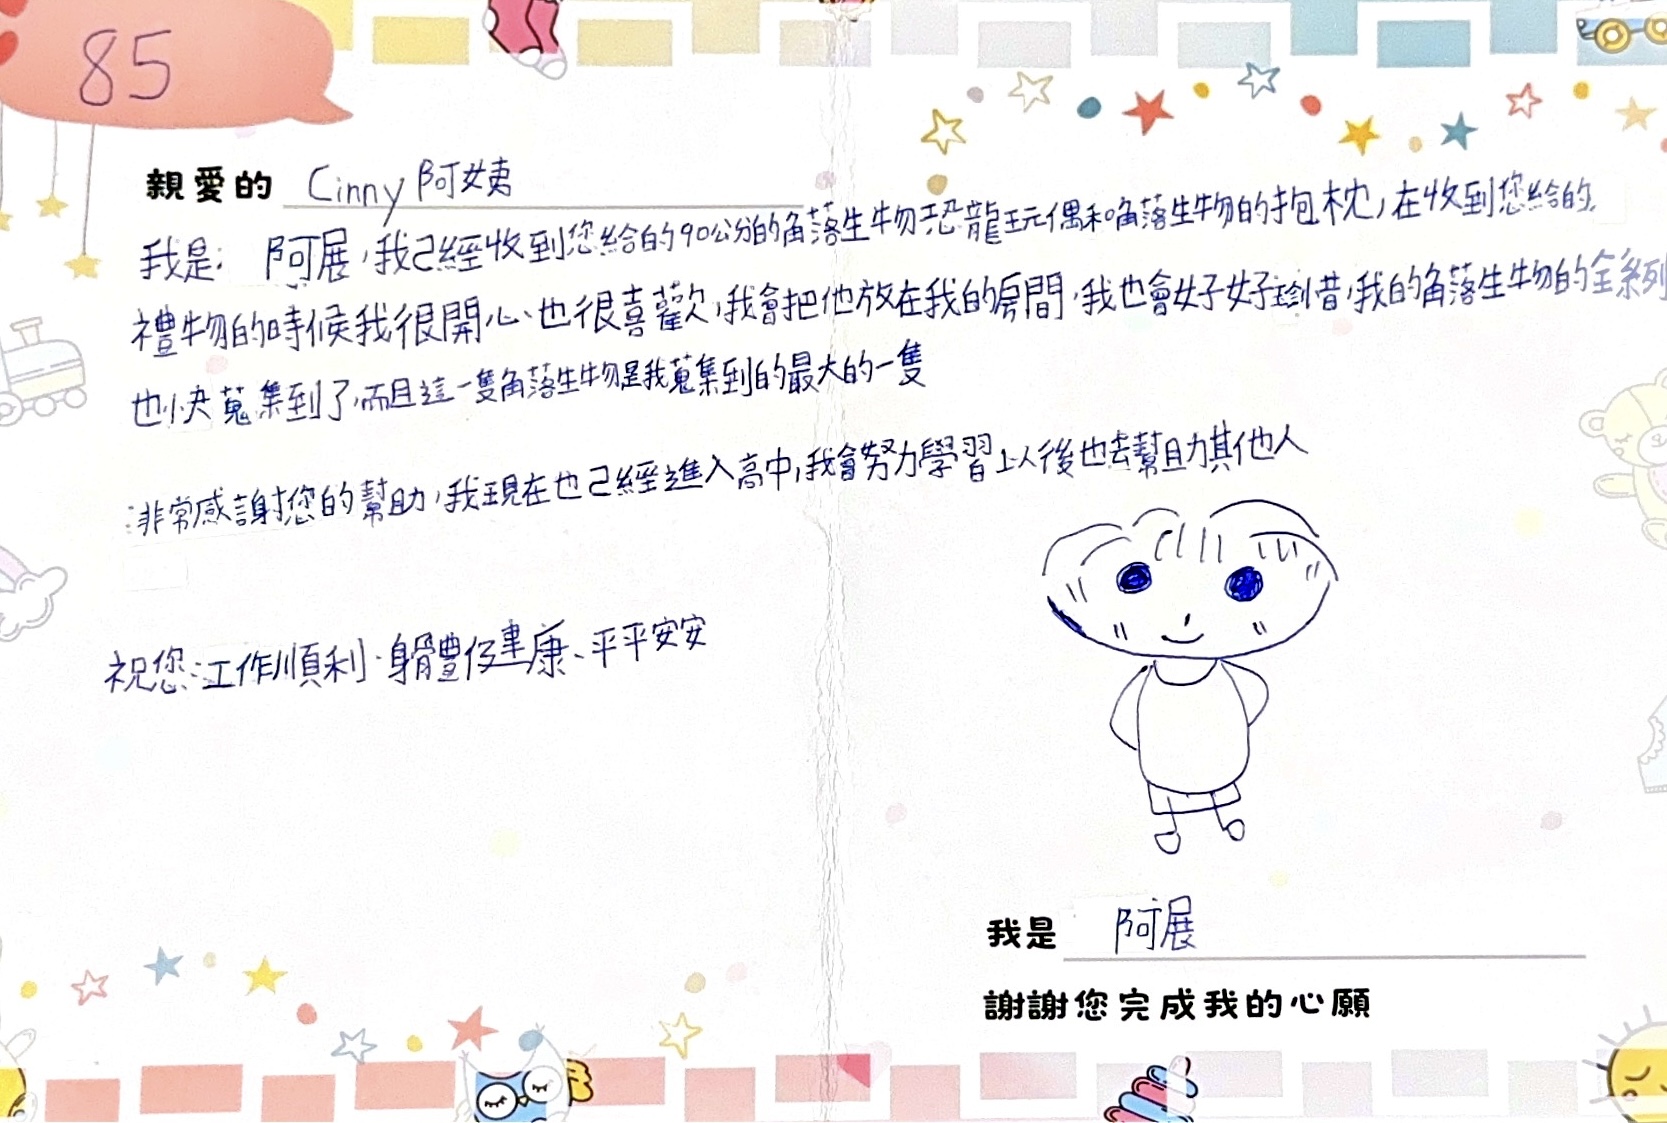 85
親愛的 Cinny 阿姨
我是: 阿展,我已經收到您給的90公分的角落生物恐龍玩偶和角落生物的抱枕,在收到您給的
禮物的時候我很開心、也很喜歡,我會把他放在我的房間,我也會好好珍惜,我的角落生物的全系列
也快蒐集到了,而且這一隻角落生物是我蒐集到的最大的一隻
非常感謝您的幫助,我現在也已經進入高中,我會努力學習以後也去幫助其他人
祝您:工作順利、身體健康、平平安安
我是 阿展
謝謝您完成我的心願